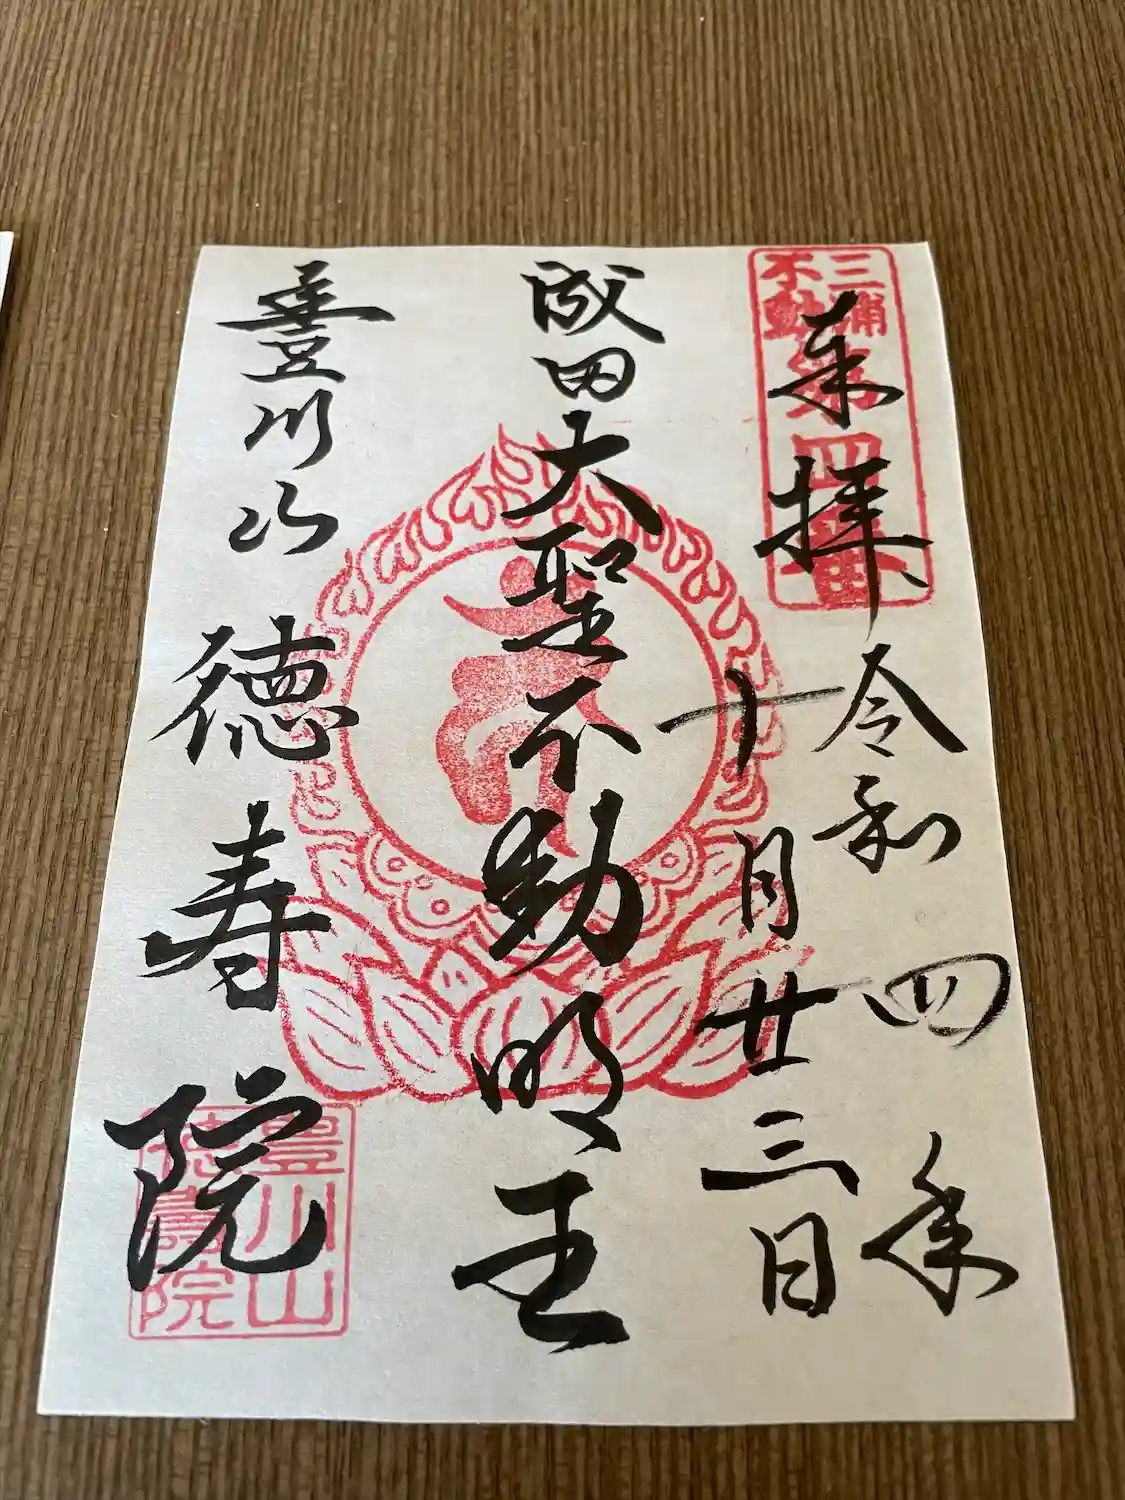 三浦
不動
第四番
来拝
令和四年
十月廿三日
成田大聖不動明王
豊川山
徳寿院
豊川山
徳壽院